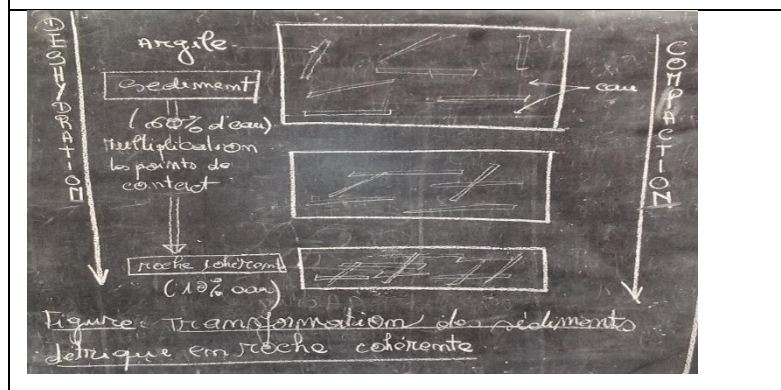 DESHYDRATION
Argile
sediment
(60% d'eau)
Multiplication
les points de
contact
roche cohérent
(10% eau)
eau
COMPACTION
Figure: Transformation des sédiments
détrique en roche cohérente